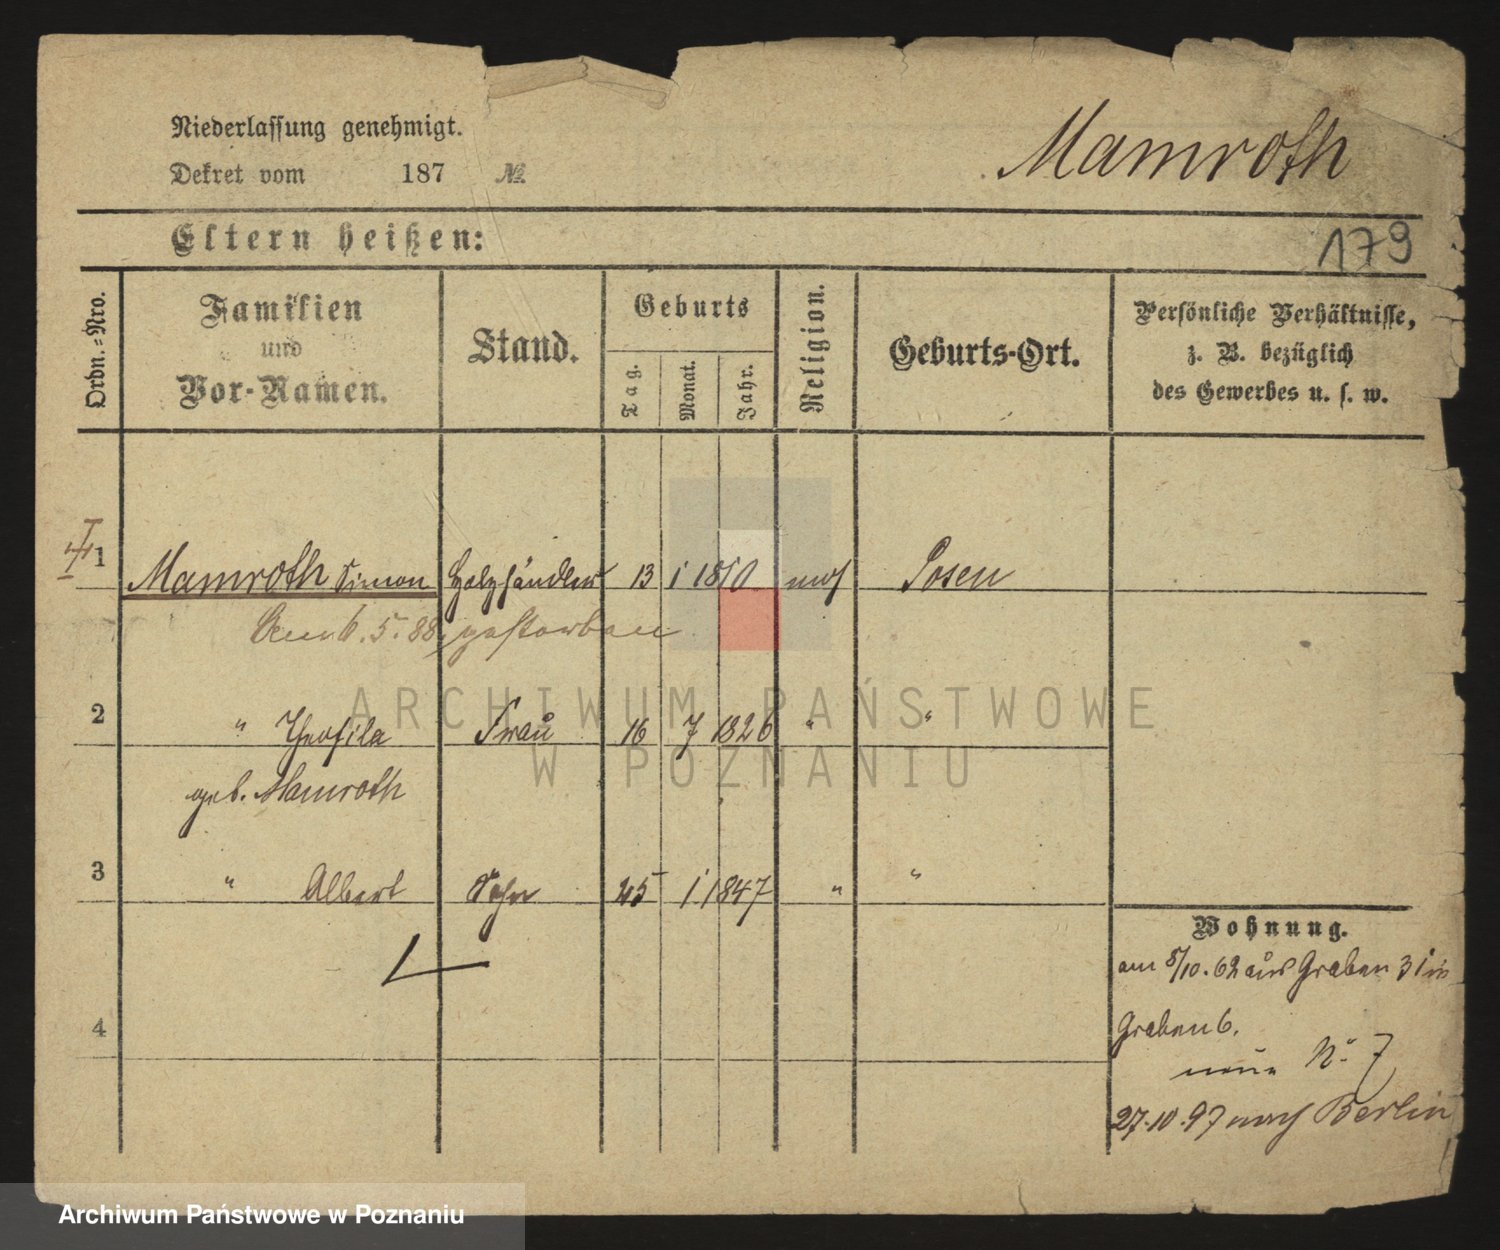 Niederlassung genehmigt.
Dekret vom 187 №
Mamroth
Eltern heißen:
179
Ordn.-Nro.
Familien
und
Vor-Namen.
Stand.
Geburts
Tag.
Monat.
Jahr.
Religion.
Geburts-Ort.
Persönliche Verhältnisse,
z. B. bezüglich
des Gewerbes u. s. w.
1 Mamroth Simon Holzhändler 13 1 1810 mos Posen
6. 5. 88 gestorben
2 " Theofila Frau 16 7 1826 " "
geb. Mamroth
3 " Albert Sohn 25 1 1847 " "
4
Wohnung.
am 8/10. 62 aus Graben 31 in
Graben 6.
neue No 7
27.10.97 nach Berlin
ARCHIWUM PAŃSTWOWE
W POZNANIU
Archiwum Państwowe w Poznaniu